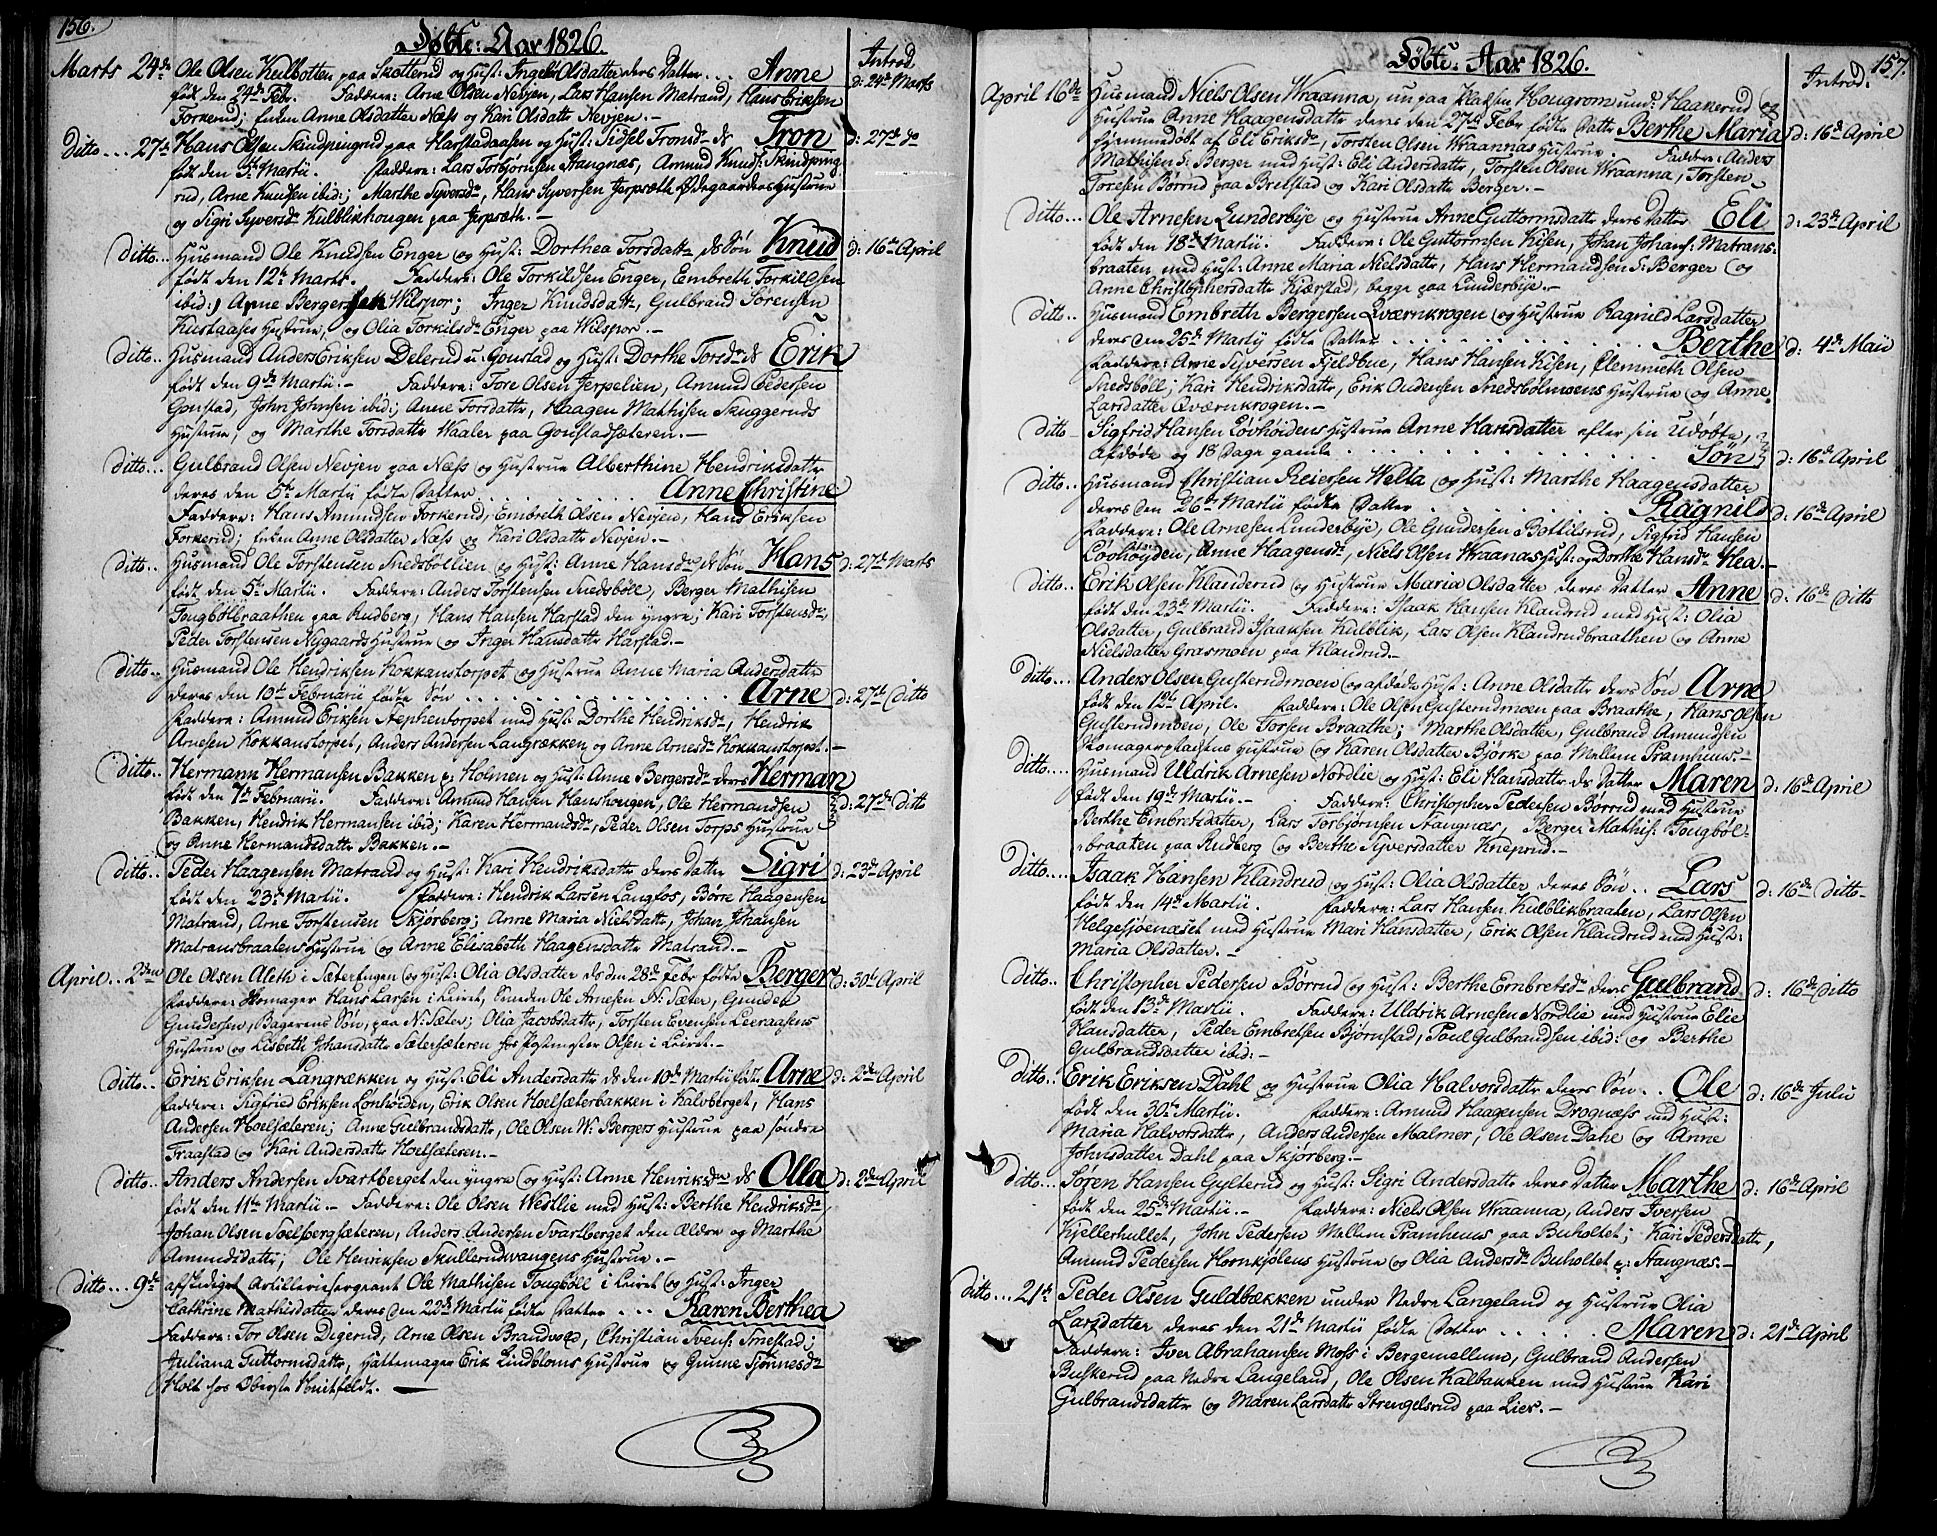 156.
Døbte: Aar 1826.
Introd.
Marts 24de Ole Olsen Kulbotten paa Skotterud og Hust: Ingebor Olsdatter deres Datter... Anne d: 24de Marts
født den 24de Febr. Faddere: Arne Olsen Nevjen, Lars Hansen Matrand, Hans Eriksen
Forkerud; Enken Anne Olsdatter Næss og Kari Olsdattr Nevjen.-
Ditto... 27de Hans Olsen Skindpingrud paa Harstadaasen og Hust: Sidsel Tronsdr ds Tron d: 27de do
født den Martii. Faddere: Lars Torbjørnsen Stangnæs, Amund Knuds: Skindping
rud, Arne Knudsen ibid; Marthe Syversdr, Hans Syversen Jerpsæth Ødegaardens Hustrue
og Sigri Syversdr Kulblikhougen paa Jerpsæth.-
Ditto... Husmand Ole Knudsen Enger og Hust: Dorthea Torsdattr ds Søn Knud d: 16de April
født den 12te Marts. Faddere: Ole Torkildsen Enger, Embreth Torkilsen
ibid:, Arne Bergersen Wilspor; Inger Knudsdattr, Gulbrand Sørensen
Kustaases Hustrue, og Olia Torkilsdr Enger paa Wilspor.-
Ditto.. Husmand Anders Eriksen Delerud u: Gonstad og Hust: Dorthe Torsdr ds Erik
født den 9de Martii.- Faddere: Tore Olsen Jerpelien, Amund Pedersen
Gonstad, John Johnsen ibid; Anne Torsdattr, Haagen Mathisen Skuggeruds
Hustrue, og Marthe Torsdattr Waaler paa Gonstadsæteren.-
Ditto... Gulbrand Olsen Nevjen paa Næss og Hustrue Alberthine Hendriksdattr
deres den 5te Martii fødte Datter........ Anne Christine
Faddere: Hans Amundsen Forkerud, Embreth Olsen Nevjen, Hans Eriksen
Forkerud; Enken Anne Olsdatter Næss og Kari Olsdattr Nevjen.-
Ditto.. Husmand Ole Torstensen Snedsbøllien og Hust: Anne Hansdr ds Søn Hans d: 27de Marts
født den 5te Martii. Faddere: Anders Torstensen Snedsbøll, Berger Mathisen
Tougbølbraathen paa Rudberg, Hans Hansen Harstad den yngre; Kari Torstensdr,
Peder Torstensen Nygaards Hustrue og Inger Hansdattr Harstad.-
Ditto.. Husmand Ole Hendriksen Kokkanstorpet og Hustrue Anne Maria Andersdattr
deres den 19de Februarii fødte Søn............ Arne d: 27de Ditto
Faddere: Amund Eriksen Stephentorpet med Hust: Dorthe Hendriksdr, Hendrik
Arnesen Kokkanstorpet, Anders Andersen Langrækken og Anne Arnesdr Kokkanstorpet.-
Ditto.. Hermann Hermansen Bakken p: Holmen og Hust: Anne Bergersdr deres Herman
født den 7de Februarii. Faddere: Amund Hansen Hanshougen, Ole Hermandsen d: 27de Ditto
Bakken, Hendrik Hermansen ibid; Karen Hermandsdr, Peder Olsen Torps Hustrue
og Anne Hermandsdatter Bakken.-
Ditto.. Peder Haagensen Matrand og Hust: Kari Hendriksdattr deres Datter Sigri d: 23de April
født den 23de Martii. Faddere: Hendrik Larsen Langfos, Børre Haagensen
Matrand, Arne Torstensen Skjørberg; Anne Maria Nielsdattr, Johan Johansen
Matransbraatens Hustrue og Anne Elisabeth Haagensdattr Matrand.-
April.. 2den Ole Olsen Aleth i SæterEngen og Hust: Olia Olsdatter ds den 28de Febr fødte Berger d: 30te April
Faddere: Skomager Hans Larsen i Leiret, Smeden Ole Arnesen N: Sæter, Gunder
Gundersen, Bagerens Søn, paa N: Sæter; Olia Jacobsdattr, Torsten Evensen Leeraasens
Hustrue og Lisbeth Johansdattr Sætersæteren hos Postmester Olsen i Leiret.-
Ditto.. Erik Eriksen Langrækken og Hust: Eli Andersdattr ds den 10de Martii født Arne d: 2den April
Faddere: Sigfried Eriksen Lonhøiden, Erik Olsen Hoelsæterbakken i Kalvberget, Hans
Andersen Hoelsæteren; Anne Gulbrandsdattr, Ole Olsen W: Bergers Hustrue paa søndre
Traastad og Kari Andersdattr Hoelsæteren.-
Ditto.. Anders Andersen Svartberget den yngre og Hust: Anne Henriksdr ds Olla d: 2den April
født den 11te Martii.- Faddere: Ole Olsen Westlie med Hust: Berthe Hendriksdr
Johan Olsen Soelbergsæteren, Anders Andersen Svartberget den Ældre og Marthe
Amundsdattr; Ole Henriksen Skullerudvangens Hustrue.-
Ditto... 9de afskediget Artilleriesergeant Ole Mathisen Tougbøll i Leiret og Hust: Inger
Cathrine Mathisdatter deres den 22de Martii fødte Datter... Karen Berthea
Faddere: Tor Olsen Digerud, Arne Olsen Brandvold, Christian Svens: Smestad;
Juliana Guttormsdattr, Hattemager Erik Lindbloms Hustrue og Gunne Sjønnesdr
Holt hos Oberste Huitfeldt.-
157.
Døbte: Aar 1826.
Introd.
April 16de Husmand Niels Olsen Wraanna, nu paa Pladsen Hougrom und: Haakerud og
Hustrue Anne Haagensdattr deres den 27de Febr fødte Dattr Berthe Maria d: 16de April
Hjemmedøbt af Eli Eriksdr, Torsten Olsen Wraannas Hustrue. Faddere: Anders
Mathisen S: Berger med Hust: Eli Andersdattr, Torsten Olsen Wraanna, Torsten
Toresen Børrud paa Breistad og Kari Olsdattr Berger.-
Ditto... Ole Arnesen Lunderbye og Hustrue Anne Guttormsdattr deres Datter Eli d: 23de April
født den 18de Martii. Faddere: Ole Guttormsen Kisen, Johan Johans: Matrans-
braaten med Hust: Anne Maria Nielsdattr, Hans Hermandsen S: Berger og
Anne Christophersdattr Kjærstad, begge paa Lunderbye.-
Ditto.. Husmand Embreth Bergersen Qværnkrogen og Hustrue Ragnild Larsdatter
deres den 25de Martii fødte Datter............ Berthe d: 4de Maii
Faddere: Arne Syversen Fjeldbue, Hans Hansen Kisen, Clemmeth Olsen
Snedsbøll; Kari Hendriksdattr, Erik Andersen Snedsbølmoens Hustrue og Anne
Larsdatter Qværnkrogen.-
Ditto- Sigfrid Hansen Lovhøidens Hustrue Anne Hansdatter efter sin Udøbte,
afdøde og 18 Dage gamle.................. Søn d: 16de April
Ditto.. Husmand Christian Reiersen Welta og Hust: Marthe Haagensdatter
deres den 26de Martii fødte Datter............ Ragnild d: 16de April
Faddere: Ole Arnesen Lunderbye, Ole Gundersen Bottilsrud, Sigfrid Hansen
Lovhøyden; Anne Haagensdr, Niels Olsen Wraanas Hust: og Dorthe Hansdr Hea.-
Ditto... Erik Olsen Klanderud og Hustrue Maria Olsdatter deres Datter Anne d: 16de Ditto
født den 23de Martii. Faddere: Isaak Hansen Klandrud med Hust: Olia
Olsdatter, Gulbrand Isaaksen Kulblik, Lars Olsen Klandrudbraathen og Anne
Nielsdatter Grasmoen paa Klandrud.-
Ditto... Anders Olsen Gusterudmoen og afdøde Hust: Anne Olsdattr deres Søn Arne
født den 12te April. Faddere: Ole Olsen Gusterudmoen paa Braathe, Hans Olsen
Gusterudmoen, Ole Torsen Braathe; Marthe Olsdatter, Gulbrand Amundsen
Skomagerpladsens Hustrue og Karen Olsdatter Bjørke paa Mellem Pramhuus.-
Ditto.... Husmand Uldrik Arnesen Nordlie og Hust: Eli Hansdattr ds Datter Maren d: 16de April
født den 19de Martii.- Faddere: Christopher Pedersen Børrud med Hustrue
Berthe Embretsdatter, Lars Torbjørnsen Stangnæs, Berger Mathis: Tougbøl-
braaten paa Rudberg og Berthe Syversdatter Kneprud.-
Ditto.... Isaak Hansen Klandrud og Hust: Olia Olsdatter deres Søn.. Lars d: 16de Ditto
født den 14de Martii. Faddere: Lars Hansen Kulblikbraaten, Lars Olsen
Helgesjøenæset med Hustrue Mari Hansdatter; Erik Olsen Klandrud med Hust:
Maria Olsdatter.-
Ditto.. Christopher Pedersen Børrud og Hust: Berthe Embretsdr deres Gulbrand d: 16de Ditto
født den 13de Martii. Faddere: Uldrik Arnesen Nordlie med Hustrue Elie
Hansdatter, Peder Embretsen Bjørnstad, Poul Gulbrandsen ibid: og Berthe
Gulbrandsdatter ibid:-
Ditto.. Erik Eriksen Dahl og Hustrue Olia Halvorsdattr deres Søn.. Ole d: 16de Julii
født den 30te Martii. Faddere: Amund Haagensen Drognæss med Hust:
Maria Halvorsdattr, Anders Andersen Malmer, Ole Olsen Dahl og Anne
Johnsdatter Dahl paa Skjørberg.-
Ditto... Søren Hansen Gylterud og Hust: Sigri Andersdattr deres Datter Marthe d: 16de April
født den 25de Martii.- Faddere: Niels Olsen Wraanna, Anders Iversen
Kjellerhullet, John Pedersen Mellem Pramhuus paa Buholtet; Kari Pedersdattr,
Amund Pedersen Hornkjølens Hustrue og Olia Andersdr Buholtet p: Stangnæs.-
Ditto... 21de Peder Olsen Guldbækken under Nedre Langeland og Hustrue Olia
Larsdatter deres den 21de Martii fødte Datter...... Maren d: 21de April
Faddere: Iver Abrahamsen Moss i Bergemellum, Gulbrand Andersen
Buskerud paa Nedre Langeland, Ole Olsen Kalbakken med Hustrue Kari
Gulbrandsdattr og Maren Larsdattr Strengelsrud paa Lier.-